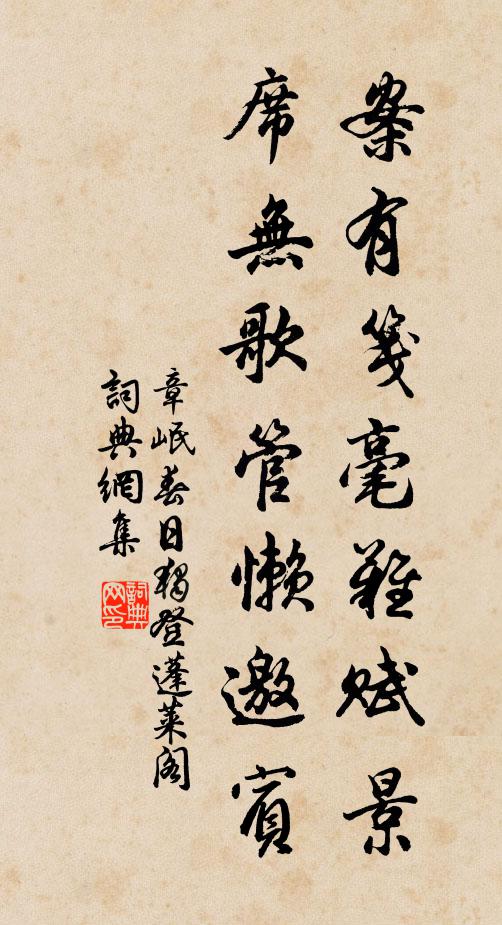 案有箋毫難賦景
席無歌管懶邀賓
章岷春日獨登蓬萊閣
詞典網集
詞典網印